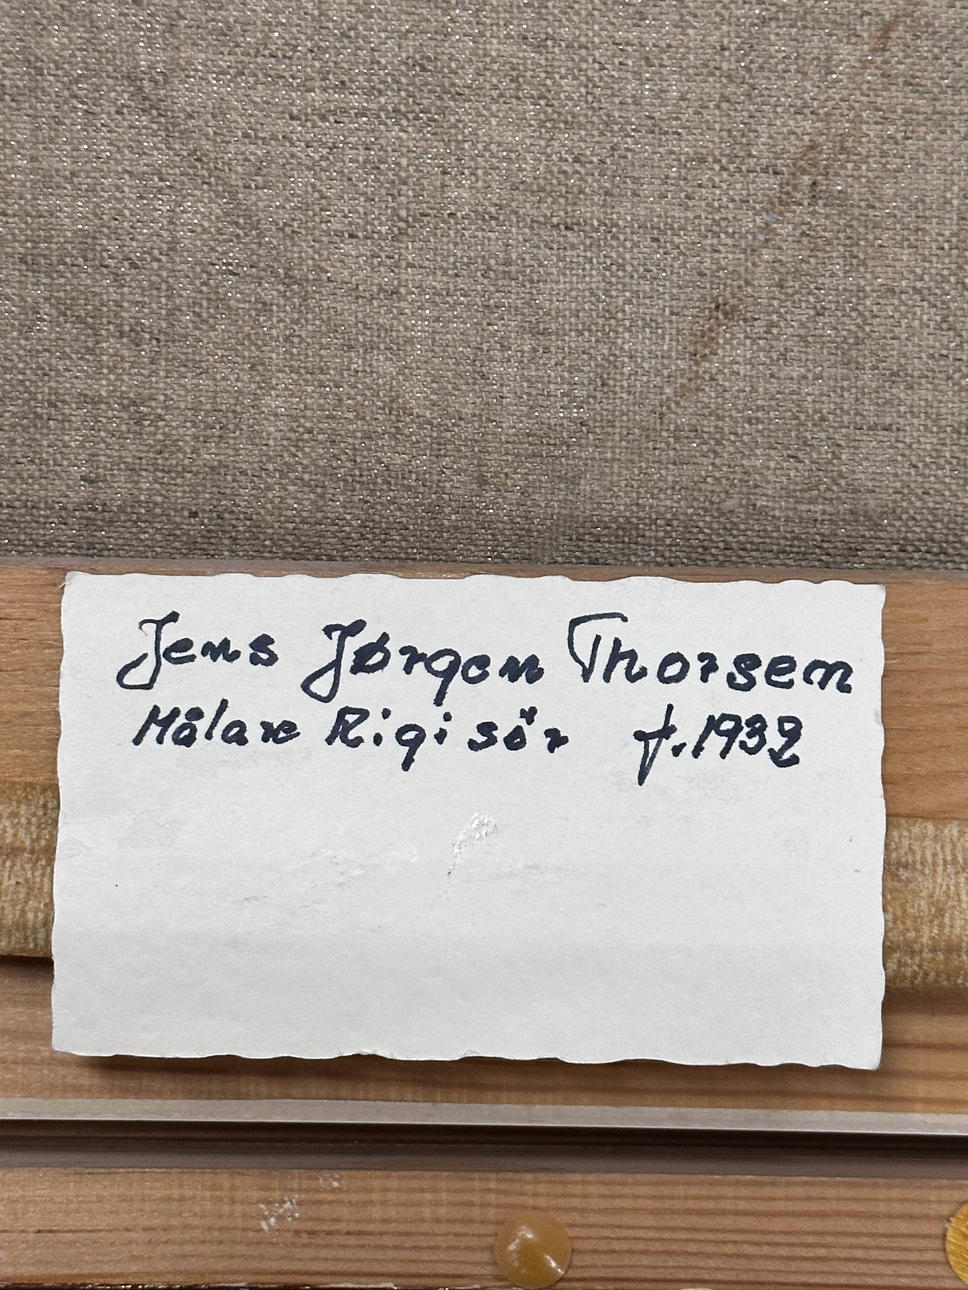 Jens Jørgen Thorsen
Målare Rigisör f. 1932